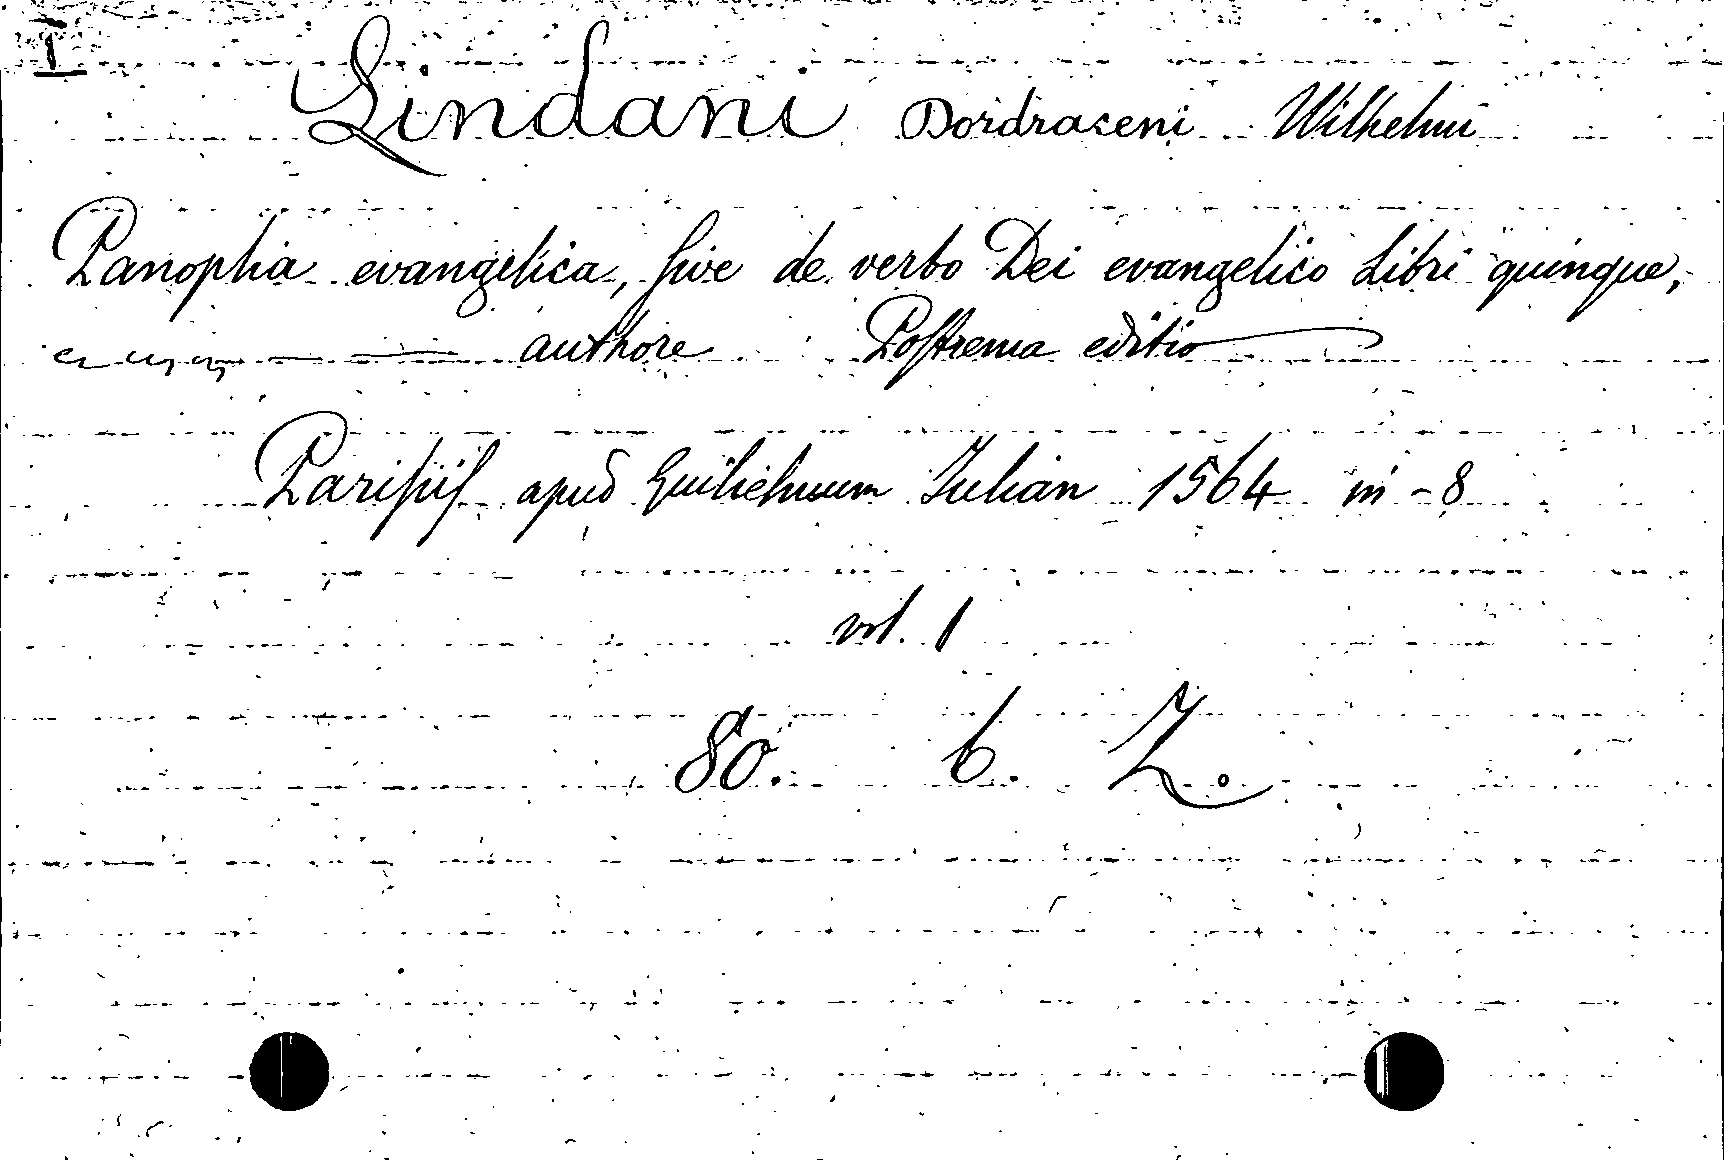 I
Lindani Dordraceni Wilhelmi
Panoplia evangelica, sive de verbo Dei evangelico Libri quinque,
authore Postrema editio
Parisiis apud Guilielmum Julian 1564 in-8
vol. 1
80. 6. Z.